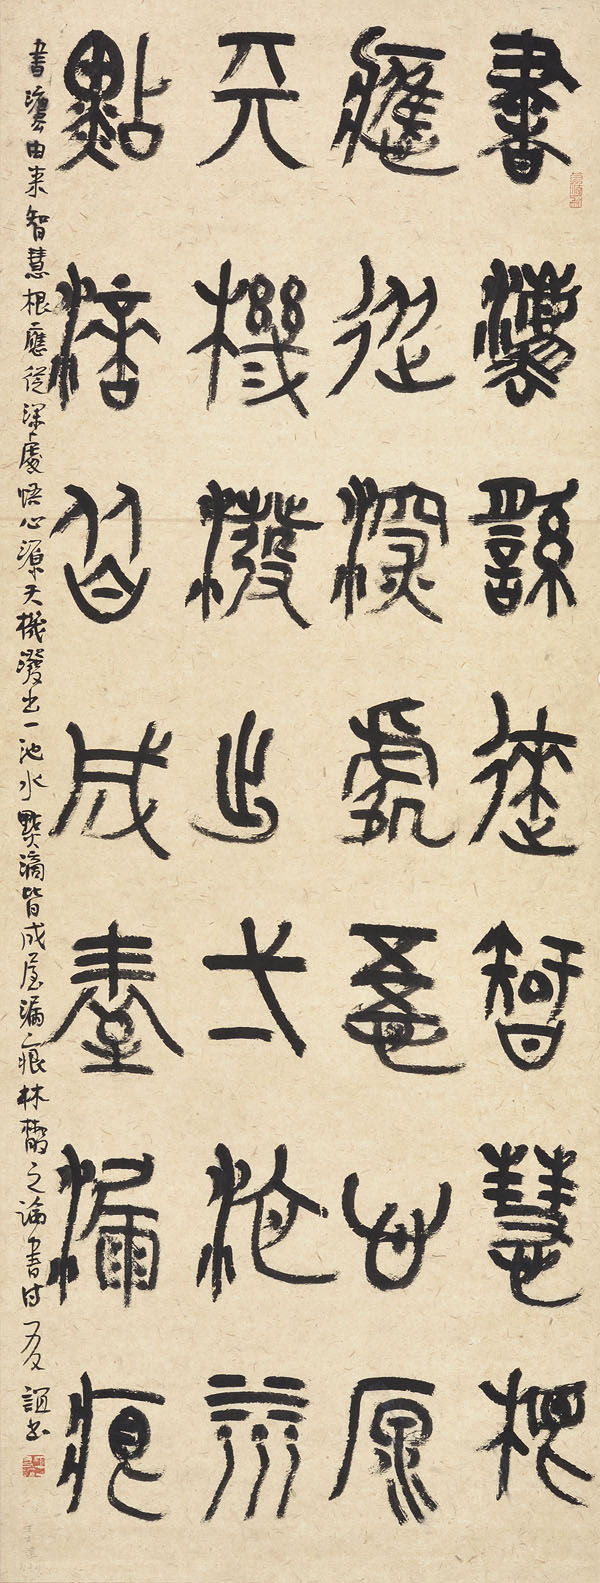 書灋繇來智慧根
應從深處悟心源
天機潑出弌池水
點滴皆成屋漏痕
書灋由來智慧根應從深處悟心源天機潑出一池水點滴皆成屋漏痕林散之論書詩 誼書